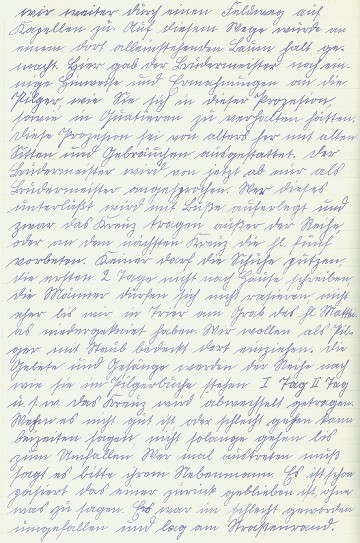 wir weiter durch einen Feldweg auf
Kapellen zu. Auf diesem Wege wurde an
einem dort alleinstehenden Baum halt ge-
macht. Hier gab der Brudermeister noch ein-
nige Hinweise und Ermahnungen an die
Pilger, wie Sie sich in dieser Prozesion,
sowie in Quatieren zu verhalten hätten.
Diese Prozesion sei von alters her mit allen
Sitten und Gebräuchen ausgestattet. Der
Brudermeister wird von jetzt ab nur als
Brüdermeister angesprochen. Wer dieses
unterläßt wird mit Buße auferlegt und
zwar das Kreuz tragen außer der Reihe,
oder an dem nächsten Kreuz die hl. fünf
vorbeten. Keiner darf die Schuhe putzen,
die ersten 2 Tage nicht nach Hause schreiben
die Männer dürfen sich nicht rasieren, nicht
eher bis wir in Trier am Grab des hl Matthi-
as niedergekniet haben. Wir wollen als Pil-
ger mit Staub bedeckt dort einziehen. Die
Gebete und Gesänge werden der Reihe nach
wie sie im Pilgerbuche stehen I Tag II Tag
u. s. w. das Kreuz wird abwechselt getragen.
Wenn es nicht gut ist oder schlecht gehen kann
beizeiten sagen nicht solange gehen bis
zum Umfallen. Wer mal austreten muß
sagt es bitte ihrem Nebenmann. Es ist schon
pasiert das einer zurück geblieben ist, ohne
was zu sagen. Es war im schlecht geworden
umgefallen und lag am Straßenrand.